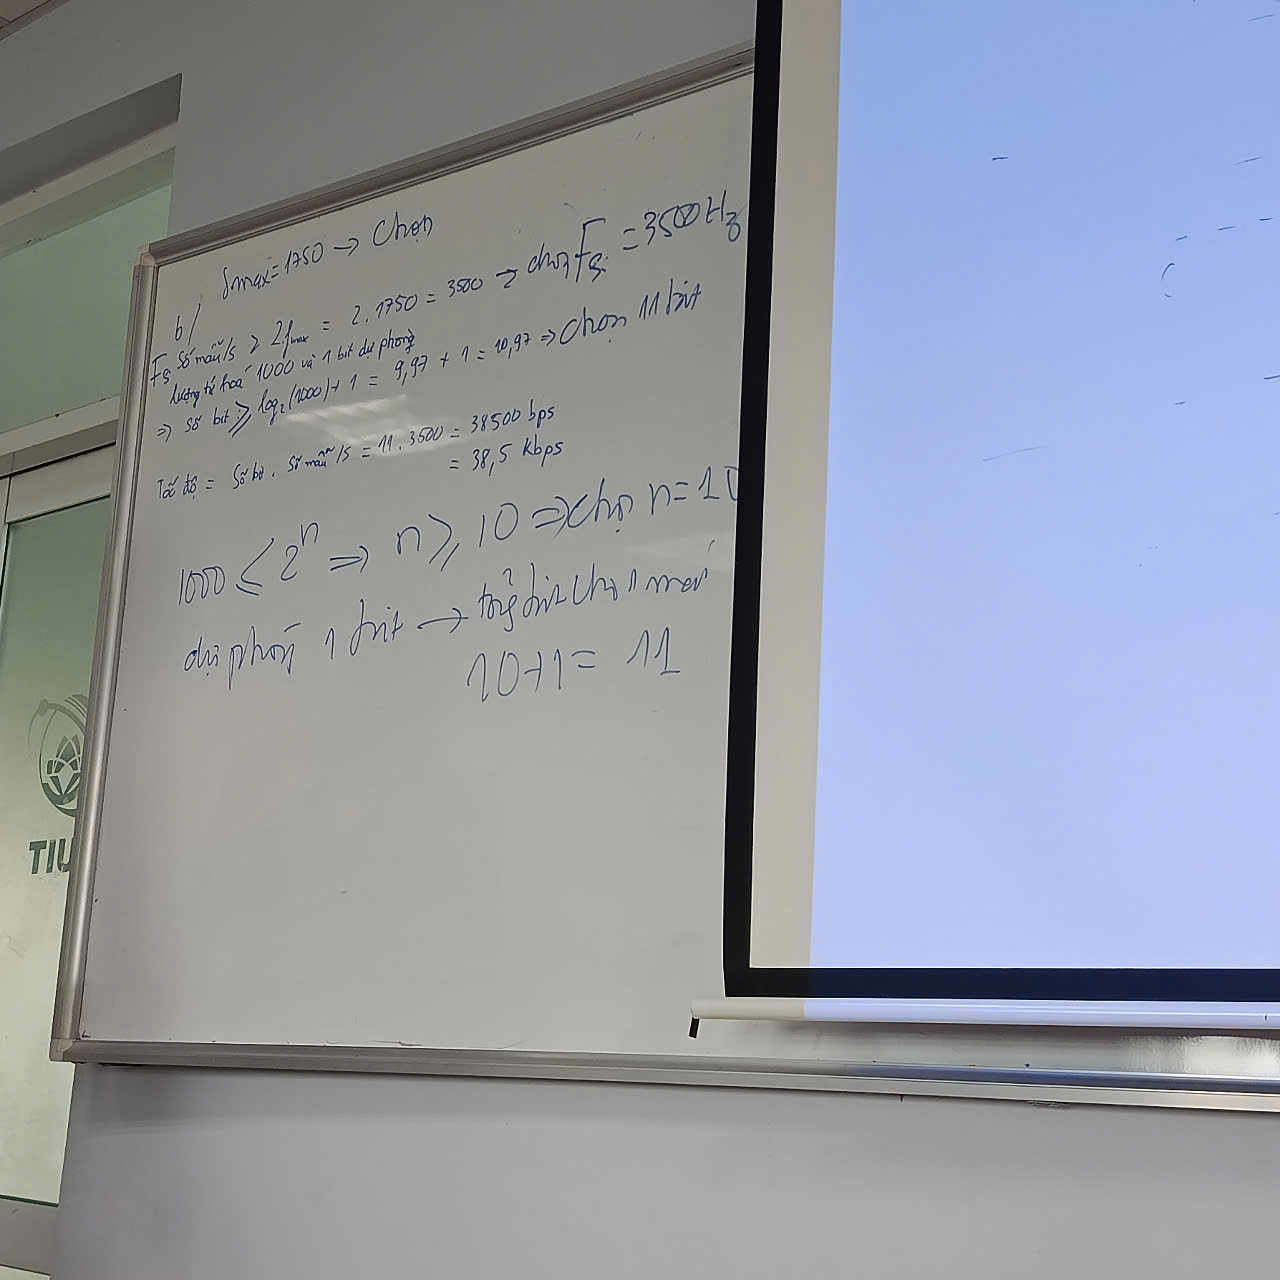 fmax = 1750 → chọn
b/
Fs Số mẫu/s ≥ 2.fmax = 2.1750 = 3500 → chọn Fs = 3500 Hz
lượng tử hoá 1000 và 1 bit dự phòng
⇒ số bit ≥ log₂(1000) + 1 = 9,97 + 1 = 10,97 ⇒ chọn 11 bit
Tốc độ = Số bit . số mẫu/s = 11.3500 = 38500 bps
= 38,5 Kbps
1000 ≤ 2ⁿ ⇒ n ≥ 10 ⇒ chọn n = 10
dự phòng 1 bit → tổng bit cho 1 mẫu
10+1 = 11
TIU